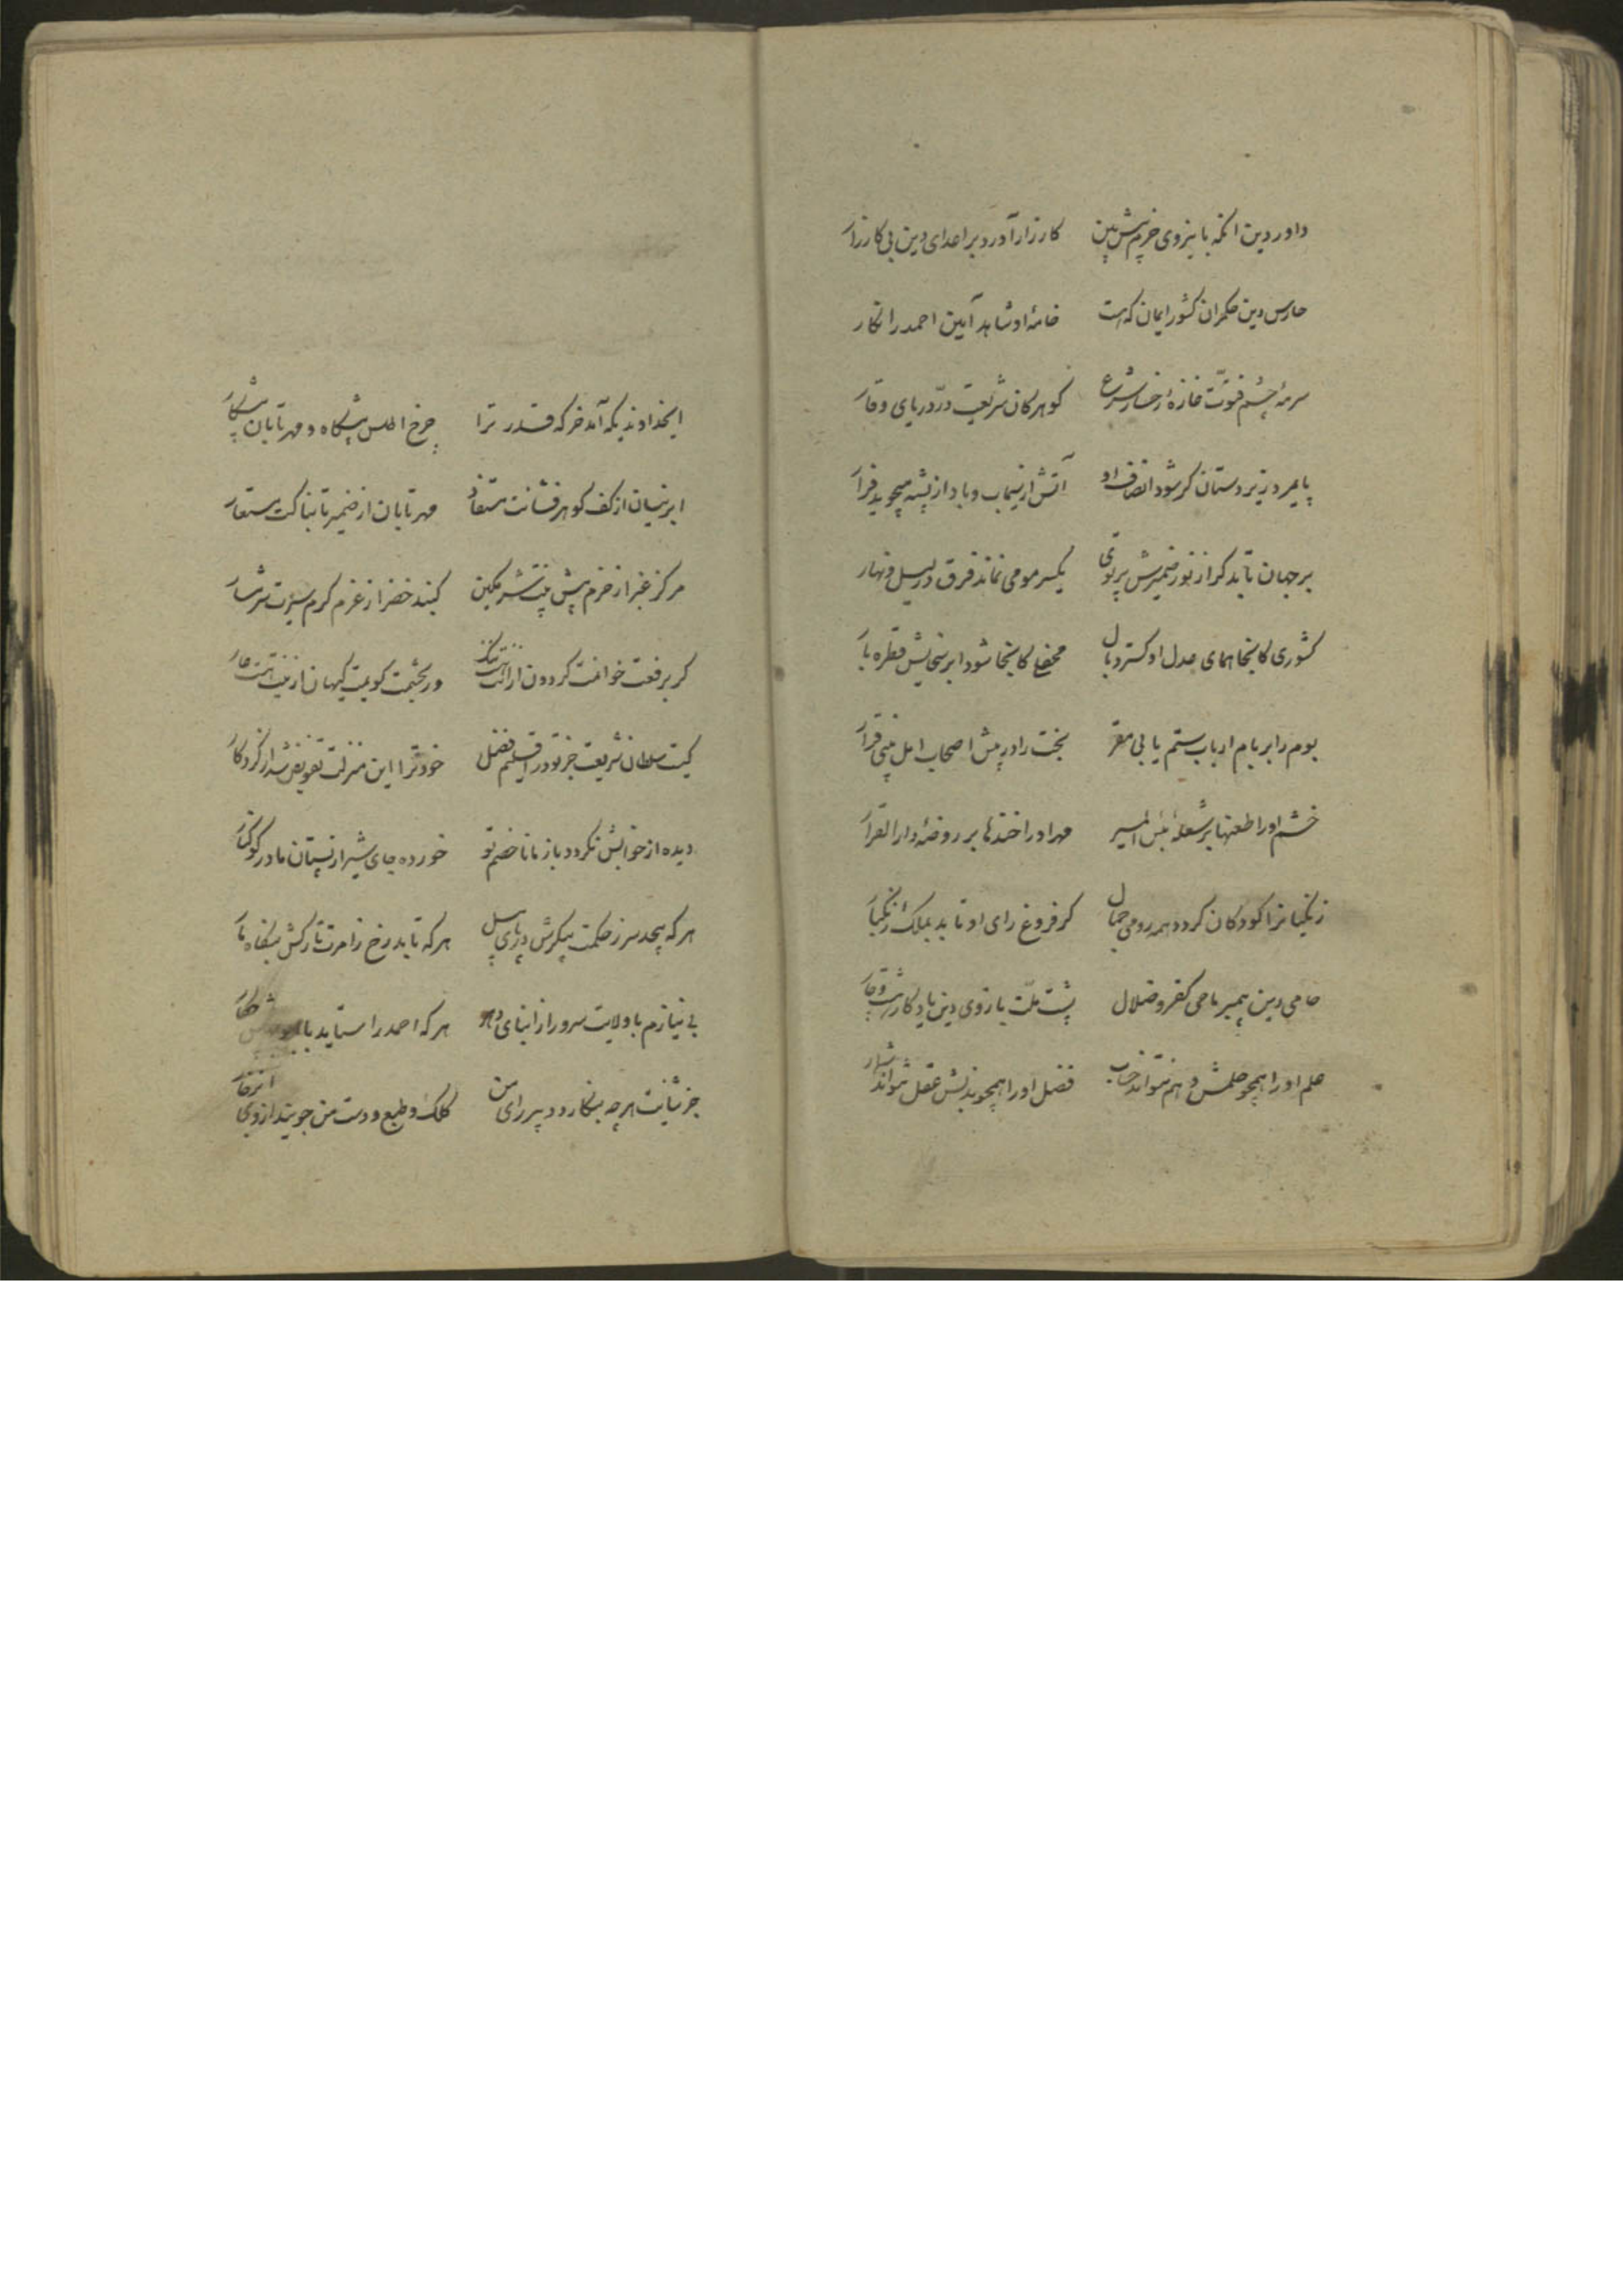 داور دین انکه با نیروی حزم پیش بین کارزار آورد بر اعدای دین بی کارزار
حارس دین حکمران کشور ایمان که هست خامۀ او شاهد آیین احمد را نکار
سرمۀ چشم فتوّت غازۀ رخسار شرع کوهر کان شریعت درّ دریای وقار
پایمرد زیردستان کر شود انصاف او آتش از سیماب و باد از پشه میجوید فرار
بر جهان تابد کر از نور ضمیرش پرتوی یکسر مومی نماند فرق در لیل و نهار
کشوری کاینجا همای عدل او کسترد بال محفلی کاینجا شود ابر سخایش قطره بار
بوم را بر بام ارباب ستم یابی مقر بخت را در پیش اصحاب امل بینی قرار
خشم او را طعنها بر شعلۀ بئس المسیر مهر او را خندها بر روضۀ دار القرار
زنکیانرا کودکان کردد همه رومی جمال کر فروغ رای او تابد بملک زنکبار
حامی دین پیمبر ماحی کفر و ضلال پشت ملّت بازوی دین یادکار هشت و چار
علم او را همچو حلمش وهم نتواند حساب فضل او را همچو بذلش عقل نتواند شمار
ایخداوندیکه آمد خرکه قدر ترا چرخ اطلس پیشکاه و مهر تابان پیشکار
ابر نیسان از کف کوهر فشانت مستفاد مهر تابان از ضمیر تابناکت مستعار
مرکز غبرا ز حزم پیش بینت شرمکین کنبد خضرا ز عزم کرم سیرت شرمسار
کر برفعت خوانمت کردون ازانت ننک ور بحشمت کویمت کیهان ازینت هست عار
کیست سلطان شریعت جز تو در اقلیم فضل خود ترا این منزلت تفویض شد از کردکار
دیده از خوابش نکردد باز مانا خصم تو خورده جای شیر از پستان مادر کوکنار
هر که پیچد سر ز حکمت پیکرش در پای پیل هر که تابد رخ ز امرت تارکش بیکاه نار
بی نیازم با ولایت سرور از ابنای دهر هر که احمد را ستاید با
جز ثنایت هر چه بنکارد دبیر رای من کلک و طبع و دست من جویند از وی انزجار